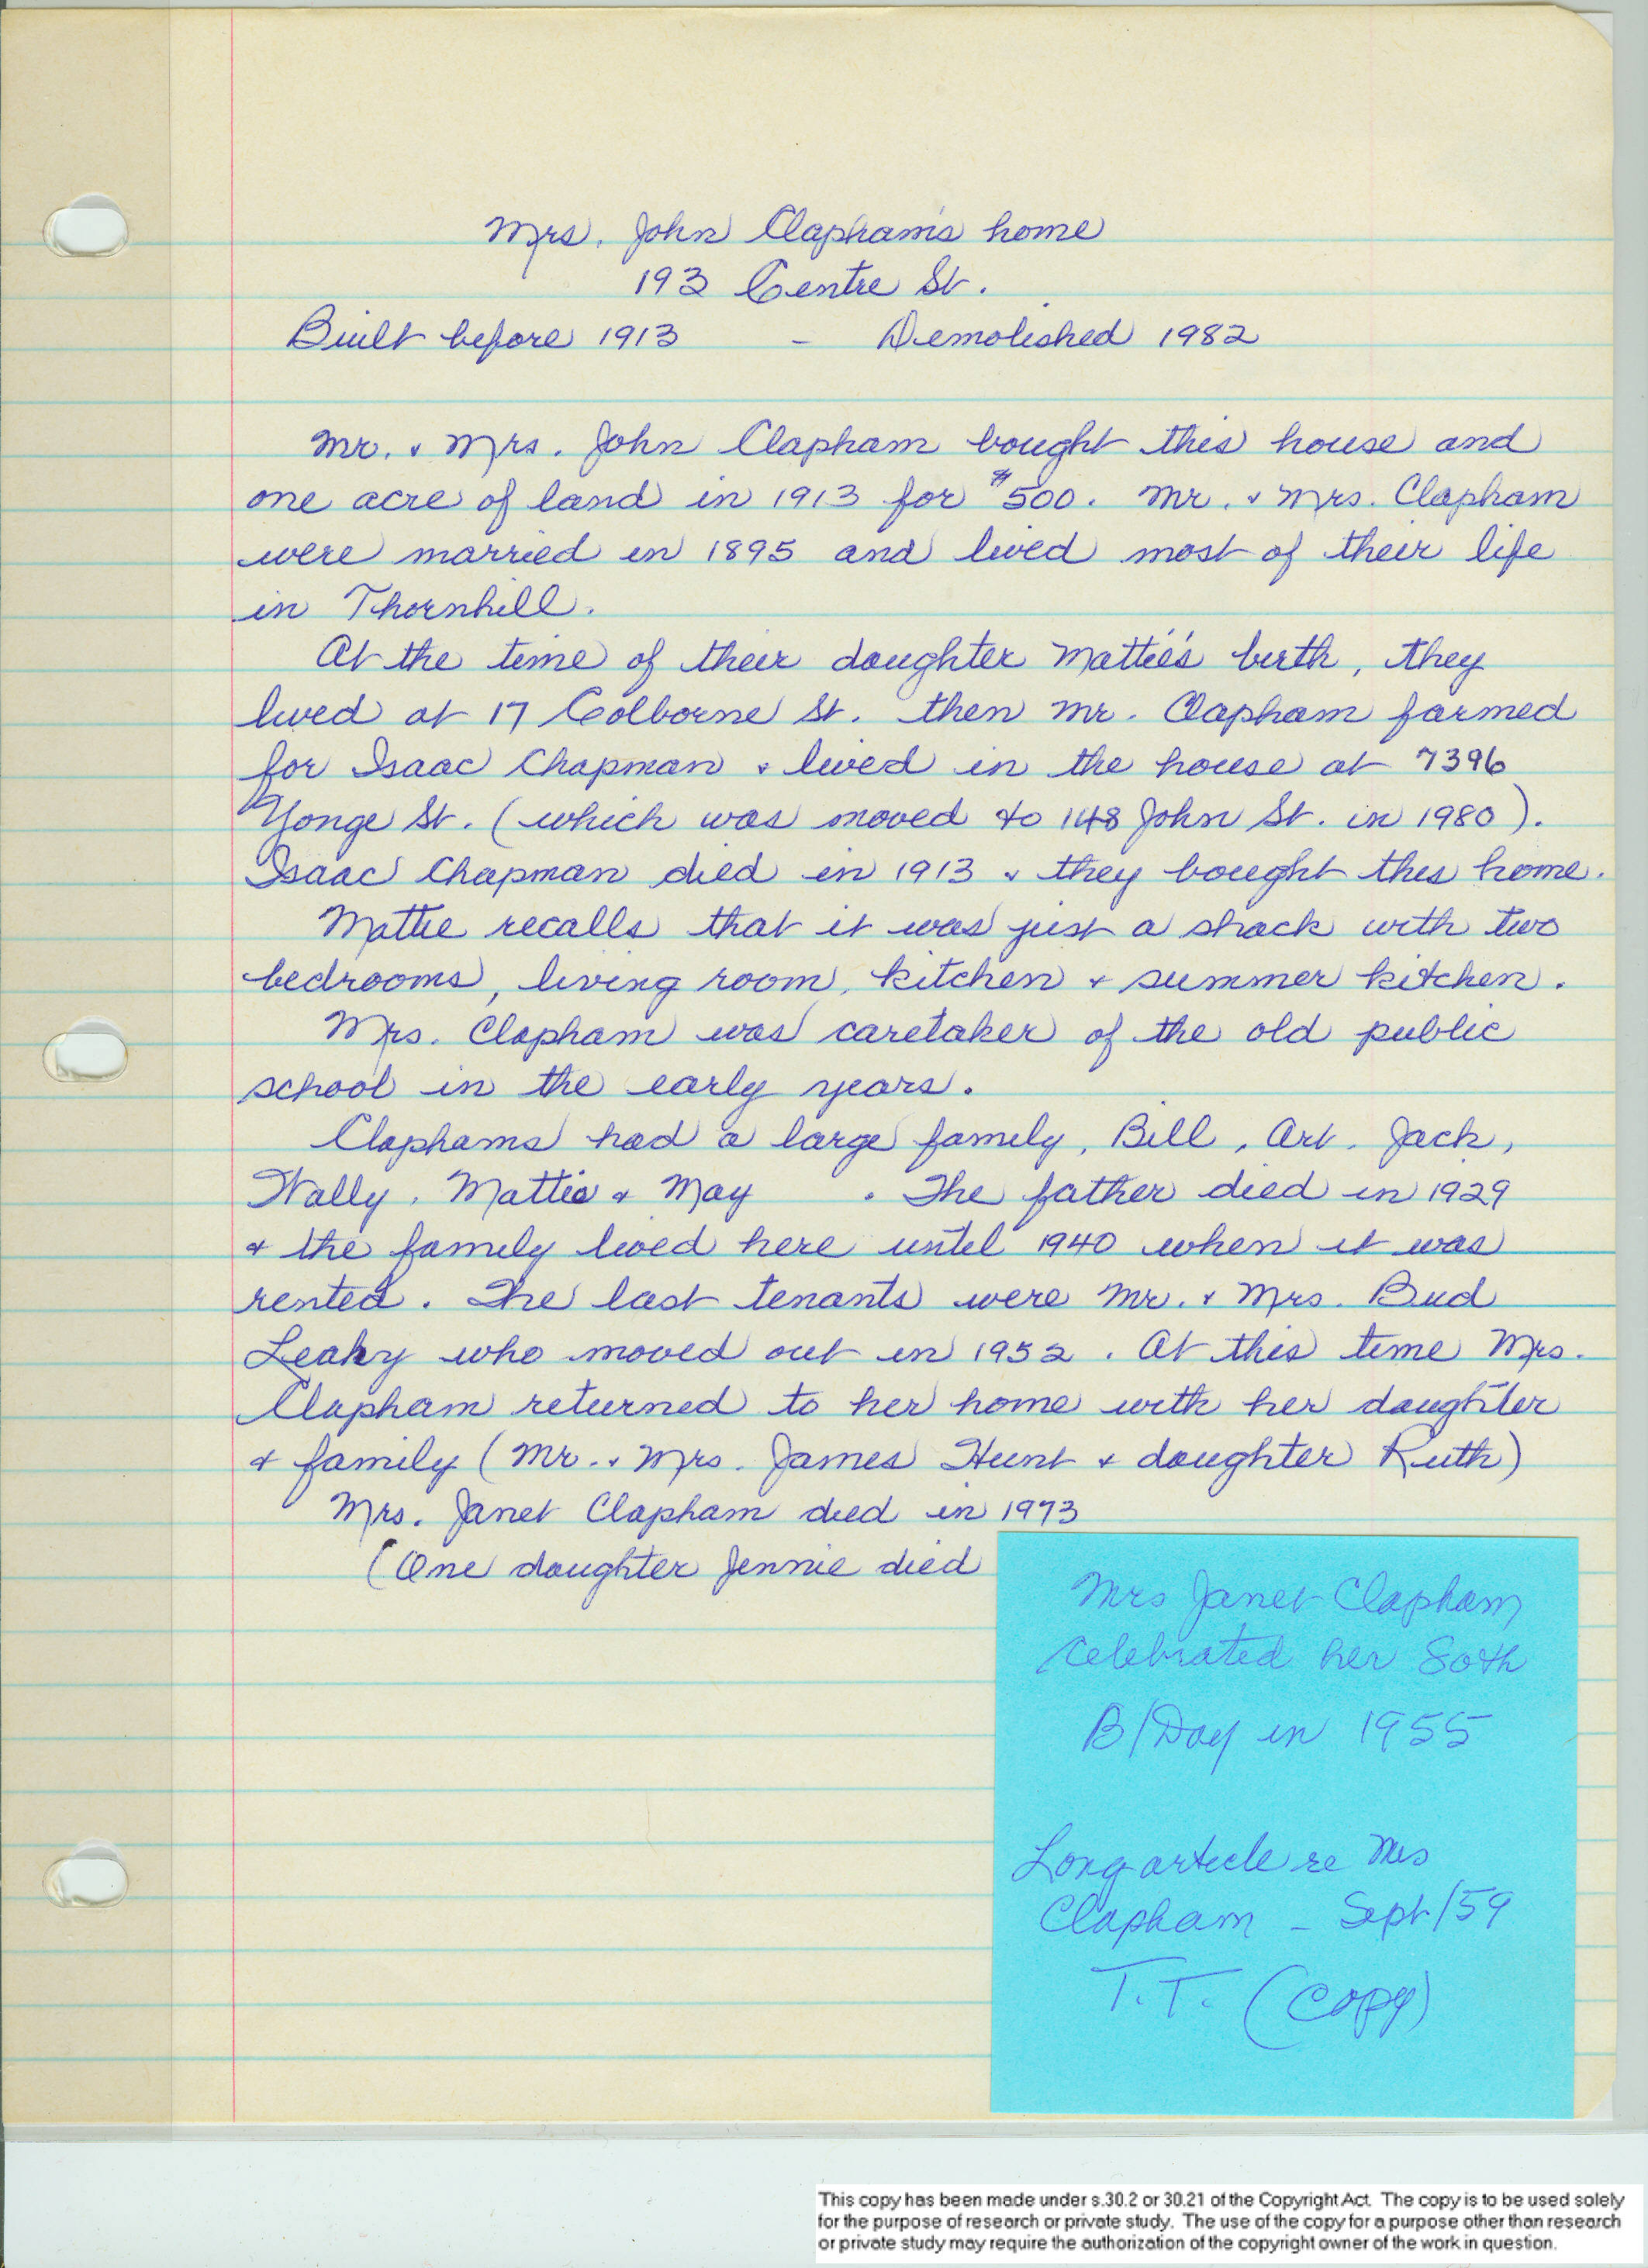 Mrs. John Clapham's home
193 Centre St.
Built before 1913 - Demolished 1982
Mr. & Mrs. John Clapham bought this house and
one acre of land in 1913 for $500. Mr. & Mrs. Clapham
were married in 1895 and lived most of their life
in Thornhill.
At the time of their daughter Mattie's birth, they
lived at 17 Colborne St. then Mr. Clapham farmed
for Isaac Chapman & lived in the house at 7396
Yonge St. (which was moved to 148 John St. in 1980).
Isaac Chapman died in 1913 & they bought this home.
Mattie recalls that it was just a shack with two
bedrooms, living room, kitchen & summer kitchen.
Mrs. Clapham was caretaker of the old public
school in the early years.
Claphams had a large family, Bill, Art, Jack,
Wally, Mattie & May . The father died in 1929
& the family lived here until 1940 when it was
rented. The last tenants were Mr. & Mrs. Bud
Leahy who moved out in 1952. At this time Mrs.
Clapham returned to her home with her daughter
& family (Mr. & Mrs. James Hunt & daughter Ruth)
Mrs. Janet Clapham died in 1973
(One daughter Jennie died
Mrs Janet Clapham
celebrated her 80th
B/Day in 1955
Long article re Mrs
Clapham - Sept/59
T.T. (copy)
This copy has been made under s.30.2 or 30.21 of the Copyright Act. The copy is to be used solely
for the purpose of research or private study. The use of the copy for a purpose other than research
or private study may require the authorization of the copyright owner of the work in question.